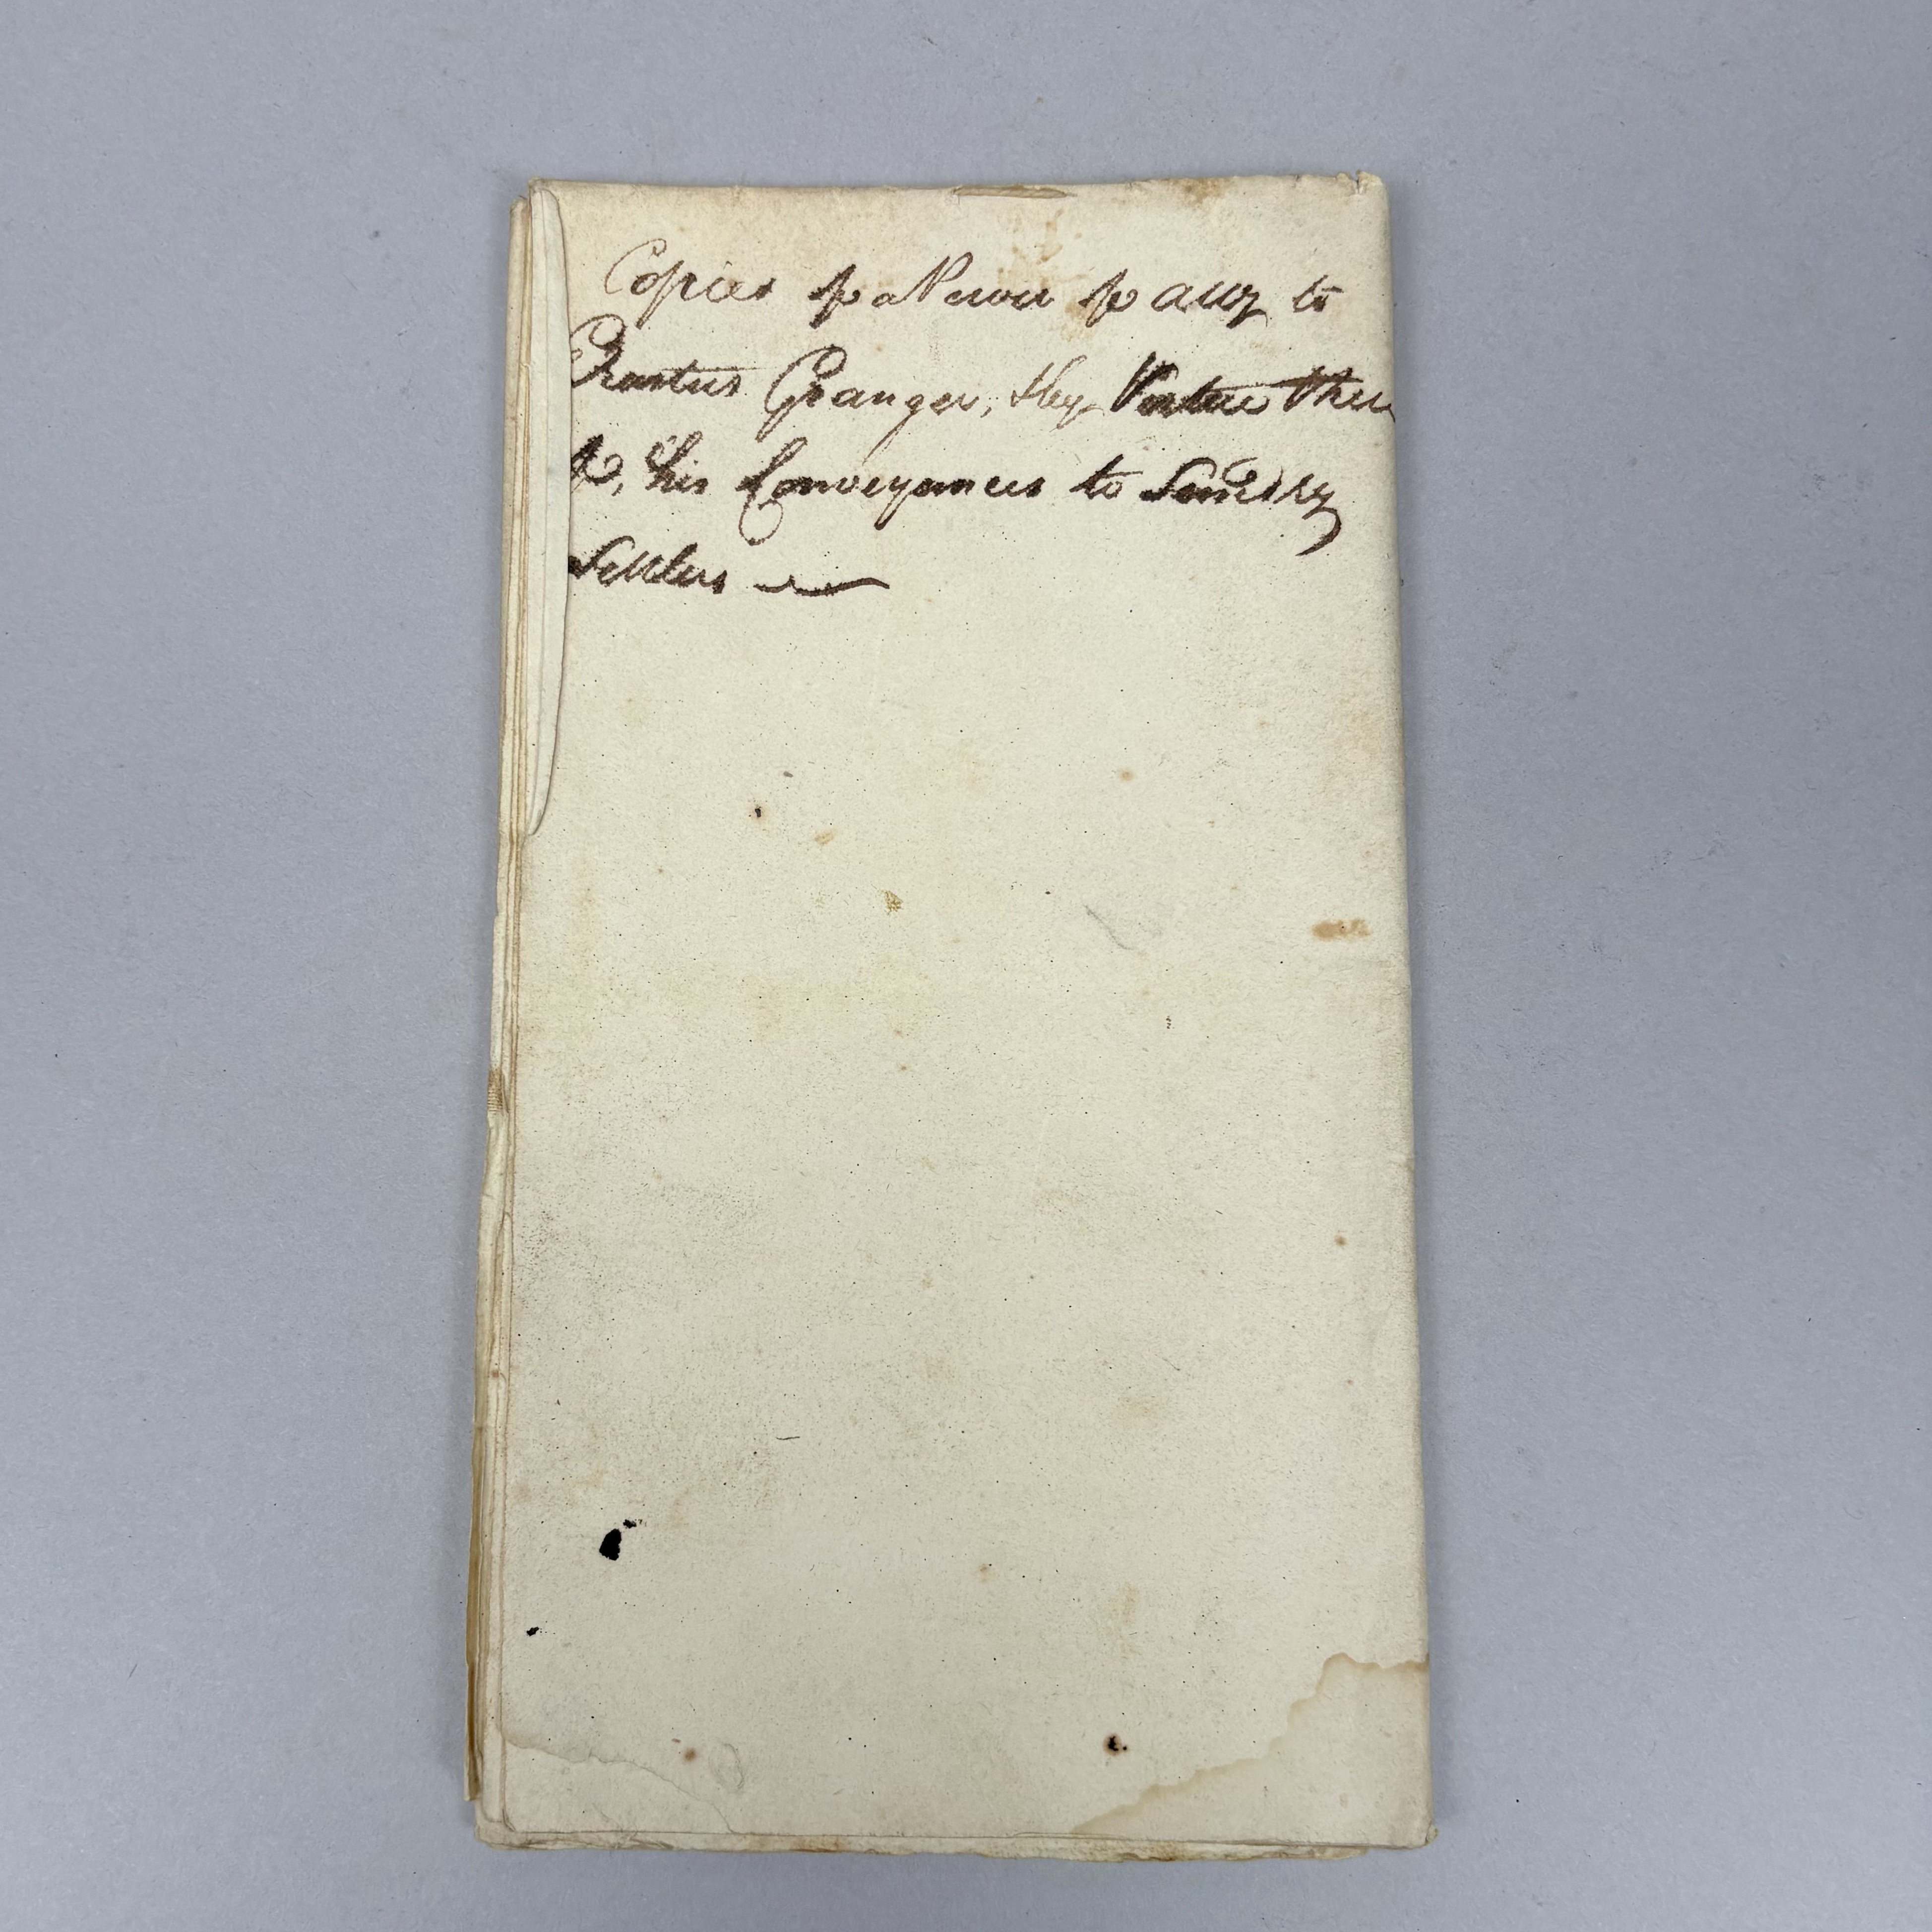 Copies of a Power of atty to
Erastus Granger, & by Virtue there
of, his Conveyances to Sundry
Settlers